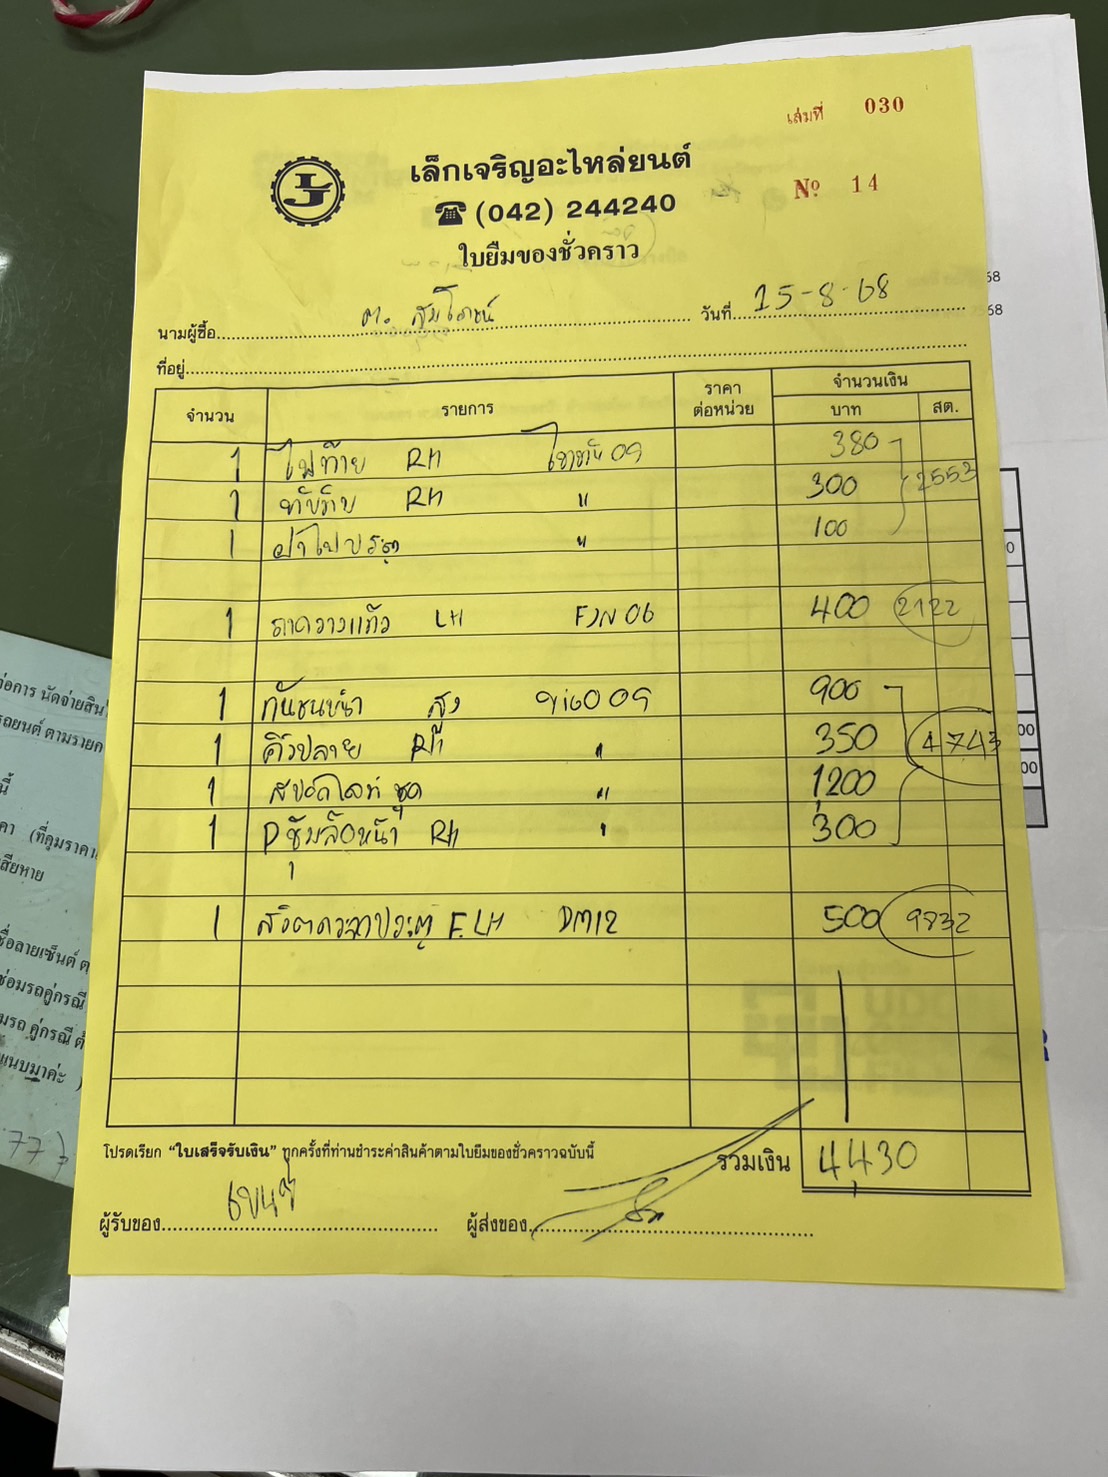 เล่มที่ 030
เล็กเจริญอะไหล่ยนต์
LJ
№ 14
☎ (042) 244240
ใบยืมของชั่วคราว
นามผู้ซื้อ วันที่ 15-8-68
ที่อยู่
จำนวน รายการ ราคาต่อหน่วย จำนวนเงิน
บาท สต.
1 ไฟท้าย RH 09 380
1 ทับทิม RH " 300 2553
1 ฝาไฟประตู " 100
1 LH 06 400 2122
1 กันชนหน้า สูง วีโก้ 09 900
1 คิ้วปลาย RH " 350 4743
1 สปอตไลท์ ชุด " 1,200
1 P ซุ้มล้อหน้า RH " 300
1 ประตู F.LH DM12 500 9832
โปรดเรียก “ใบเสร็จรับเงิน” ทุกครั้งที่ท่านชำระค่าสินค้าตามใบยืมของชั่วคราวฉบับนี้
รวมเงิน 4,430
ผู้รับของ ผู้ส่งของ
่อการ นัดจ่ายสิน
รถยนต์ ตามรายก
นี้
คา (ที่คุมราคา
เสียหาย
ชื่อลายเซ็นต์ ต
ซ่อมรถคู่กรณี
มรถ คู่กรณี ต้
แนบมาค่ะ )
77